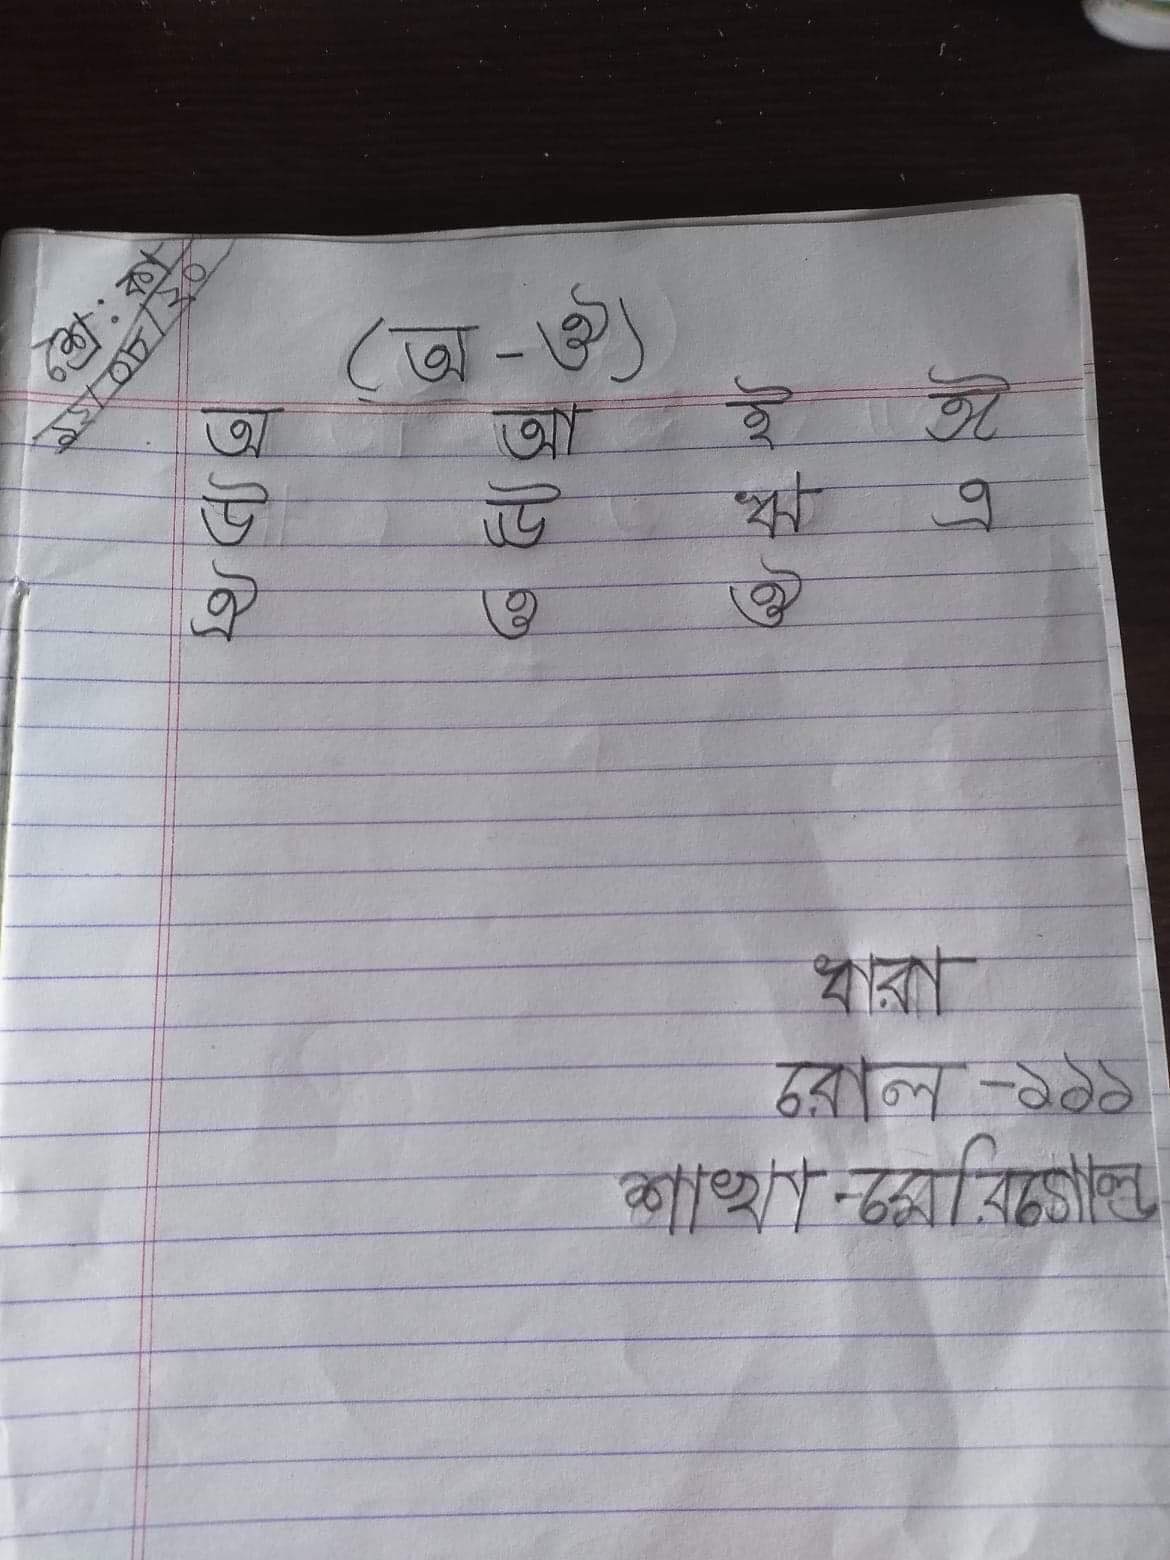 শ্রে: কা
২৯।০৮।২০
(অ - ঔ)
অ আ ই ঈ
উ ঊ ঋ এ
ঐ ও ঔ
ধারা
রোল -১১১
শাখা -মেরিগোল্ড